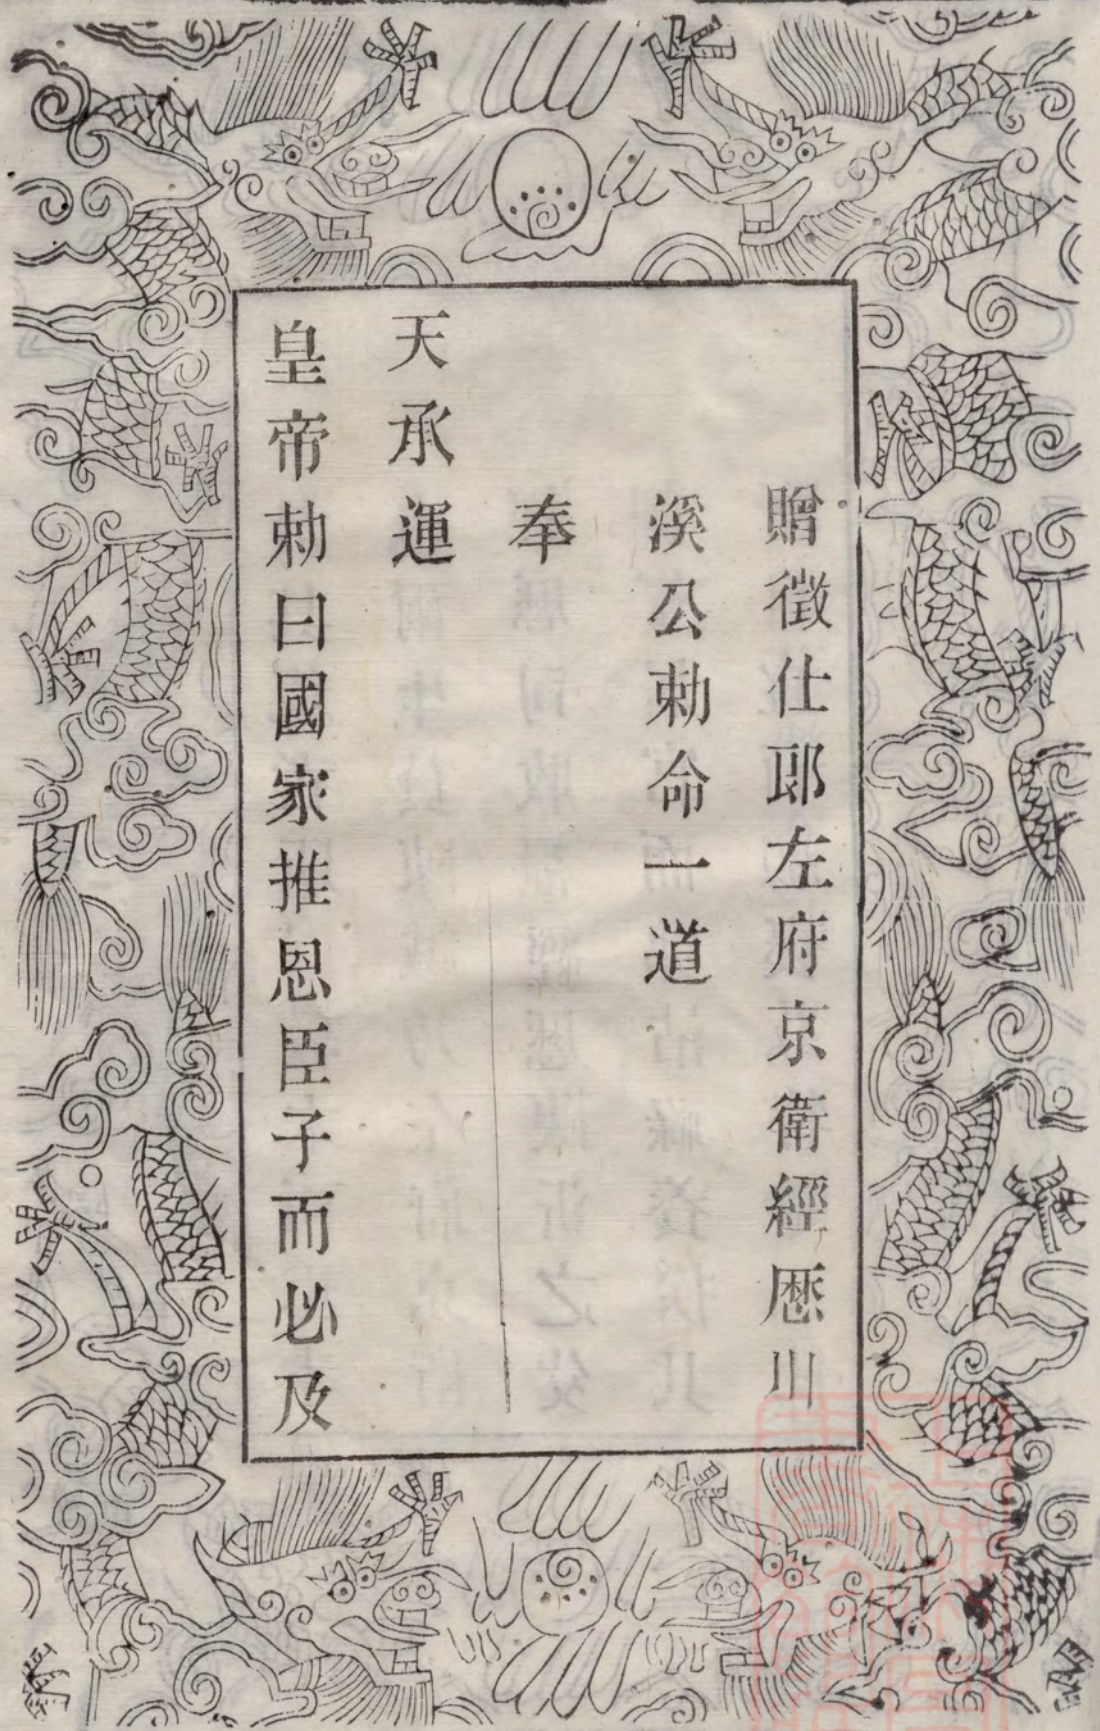 贈徵仕郎左府京衛經歷川
溪公勅命一道
奉
天承運
皇帝勅曰國家推恩臣子而必及